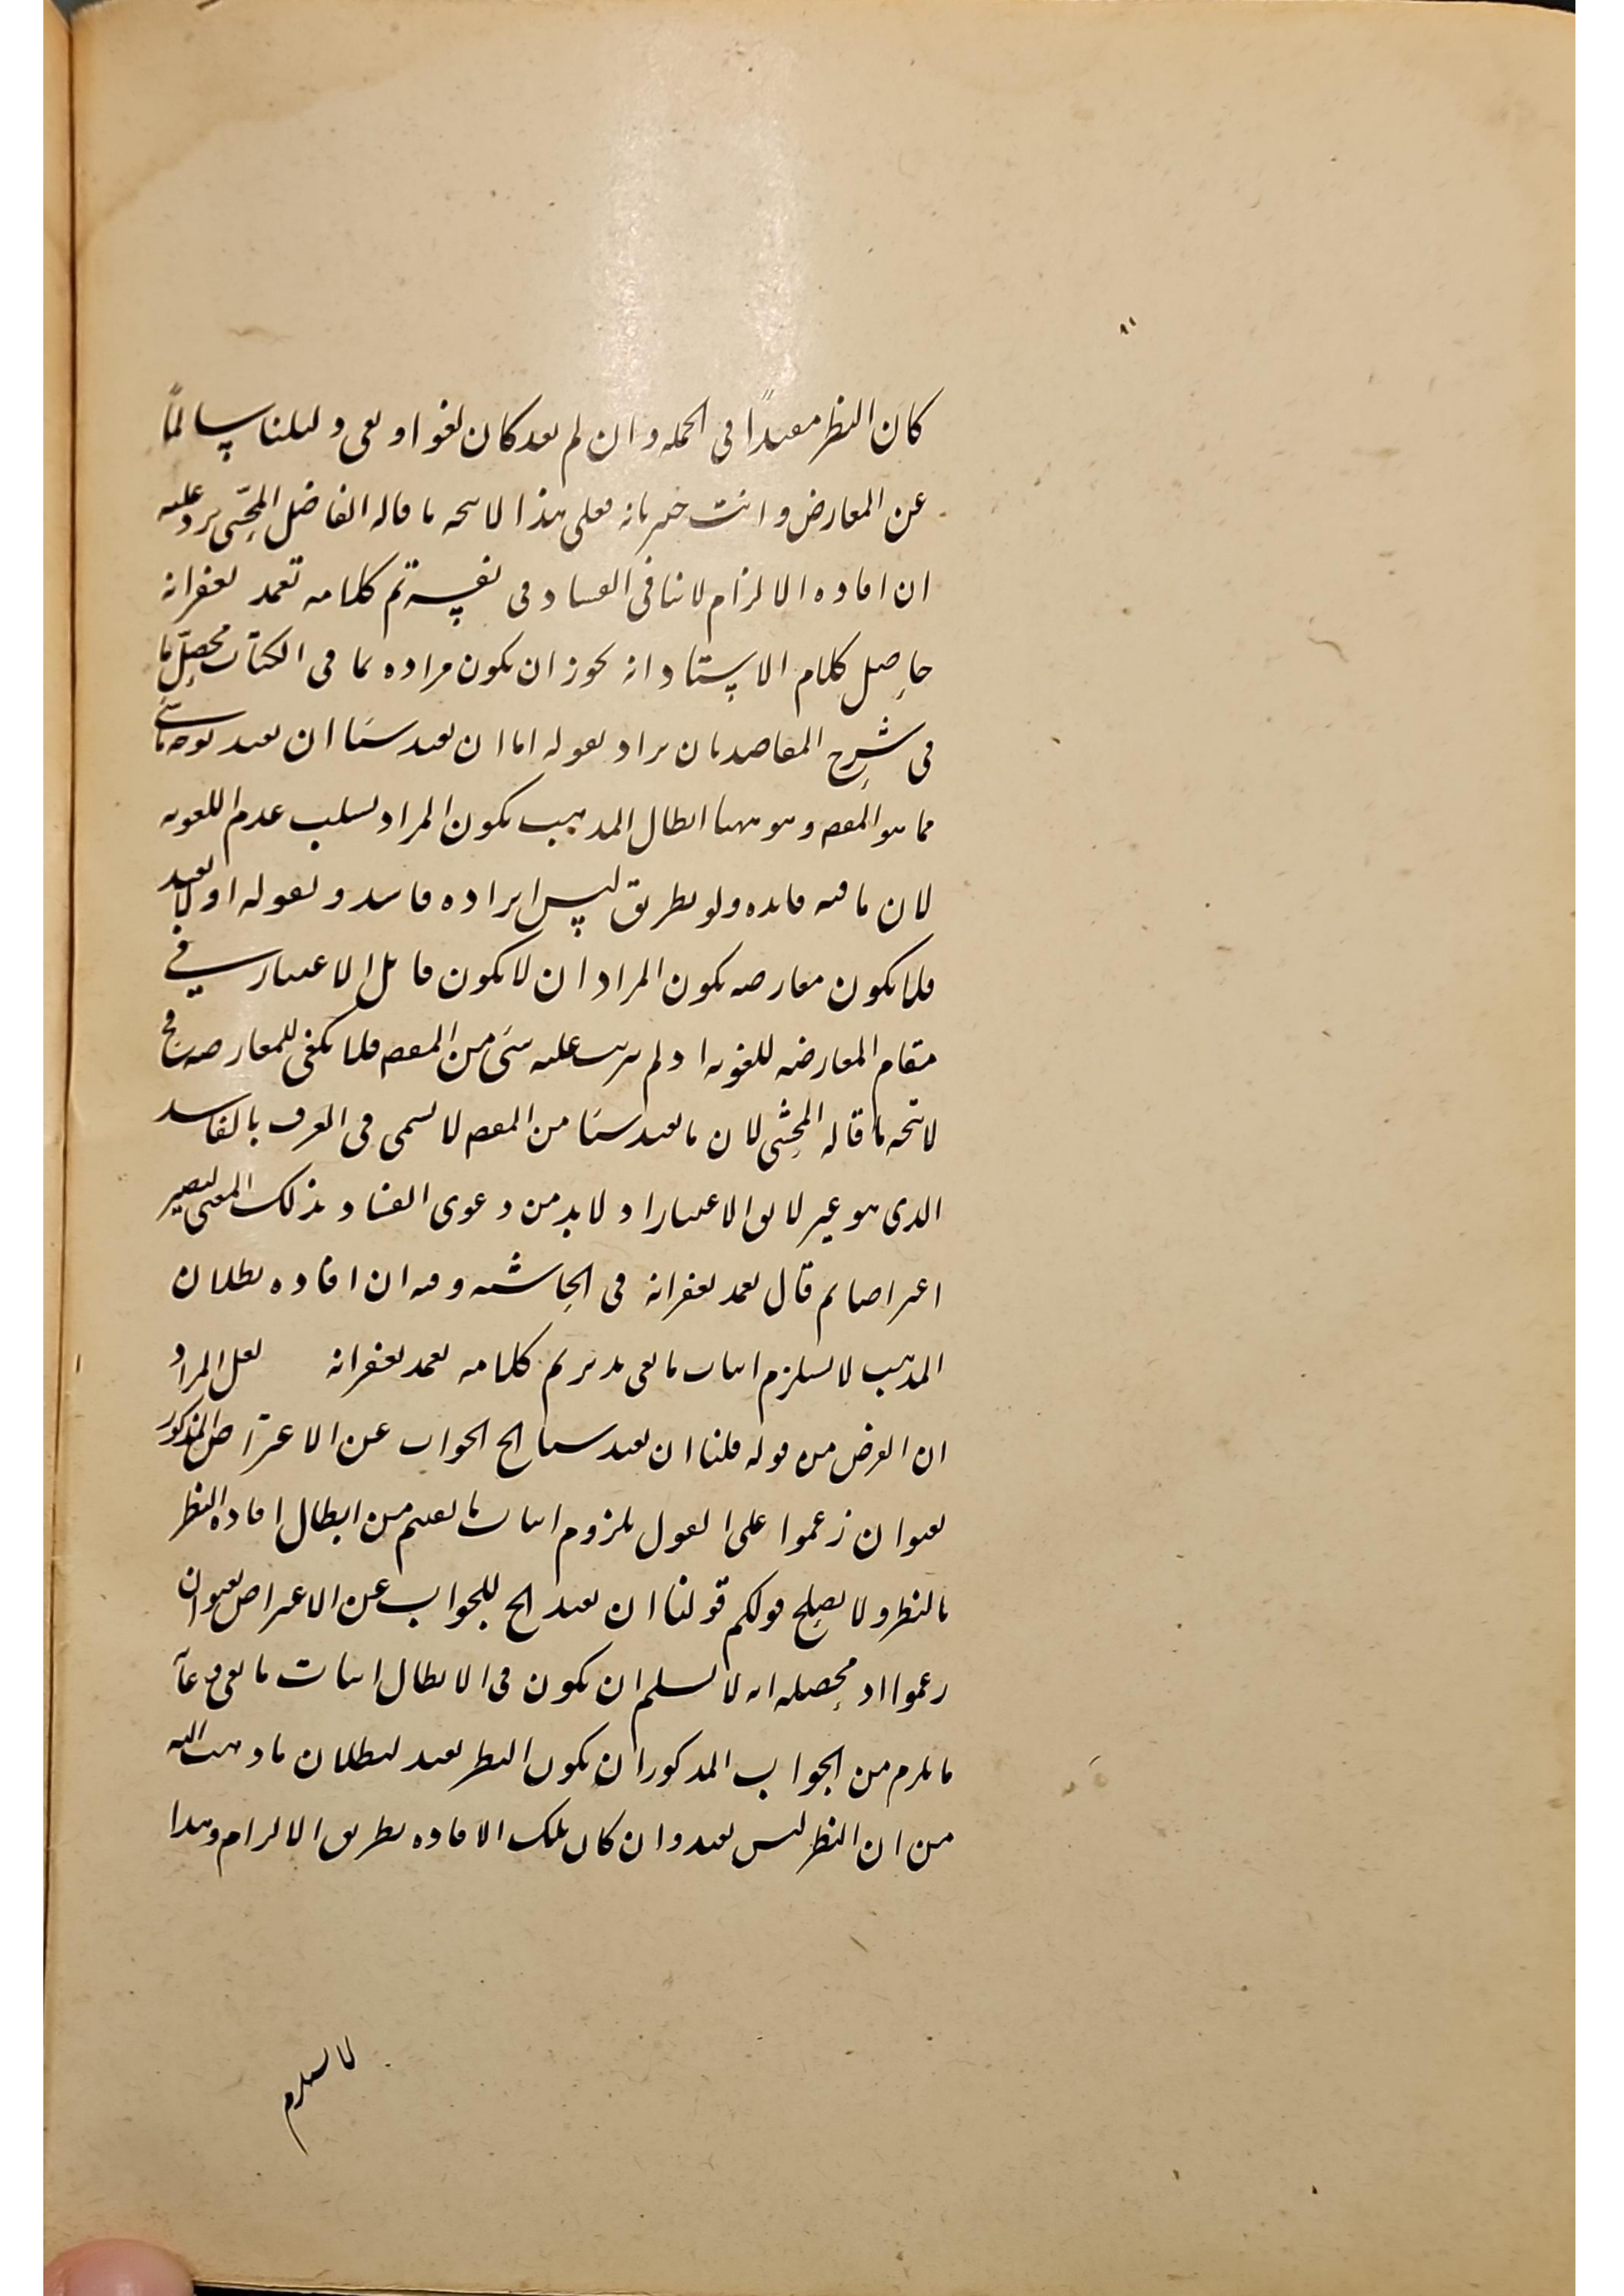 كان النظر مفيدًا في الجملة وان لم يفد كان لغوا وبقي دليلنا سالمًا
عن المعارض وانت خبير بانه فعلى هذا لا يتجه ما قاله الفاضل المحشّى يرد عليه
ان افاده الالزام لا ينافى الفساد فى نفسه تم كلامه تغمد بغفرانه
حاصل كلام الاستاد انه يجوز ان يكون مراده بما فى الكتاب محصّل ما
فى شرح المقاصد بان يراد بقوله اما ان يفيد شيئا ان يفيد بوجه ما شيئ
مما هو المقصد وهو ههنا ابطال المذهب يكون المراد سلب عدم اللغويه
لان ما فيه فايده ولو بطريق ليس ايراده فاسد وبقوله او لا يفيد
فلا يكون معارضه يكون المراد ان لا يكون قابل الاعتبار في
مقام المعارضه للغويه اذ لم يترتب عليه شئ من المقصد فلا يكفى للمعارضه فح
لا يتجه ما قاله المحشى لان ما يفيد شيئا من المقصد لا يسمى فى العرف بالفاسد
الذى هو غير لايق الاعتبار اذ لا بد من دعوى الفساد بذلك المعنى ليصير
اعتراضا ثم قال تغمد بغفرانه فى الحاشيه وفيه ان افاده بطلان
المذهب لا يستلزم اثبات ما نفى تدبر تم كلامه تغمد بغفرانه لعل المراد
ان الغرض من قوله قلنا ان يفيد شيئا الخ الجواب عن الاعتراض المذكور
بعنوان زعموا على القول بلزوم اثبات ما نفيتم من ابطال افاده النظر
بالنظر ولا يصلح قولكم قولنا ان يفيد الخ للجواب عن الاعتراض بعنوان
زعموا اذ محصله انه لا نسلم ان يكون فى الابطال اثبات ما نفى غاية
ما يلزم من الجواب المذكور ان يكون النظر يفيد لبطلان ما ذهبت اليه
من ان النظر ليس يفيد وان كان تلك الافاده بطريق الالزام وهذا
لا يستلزم